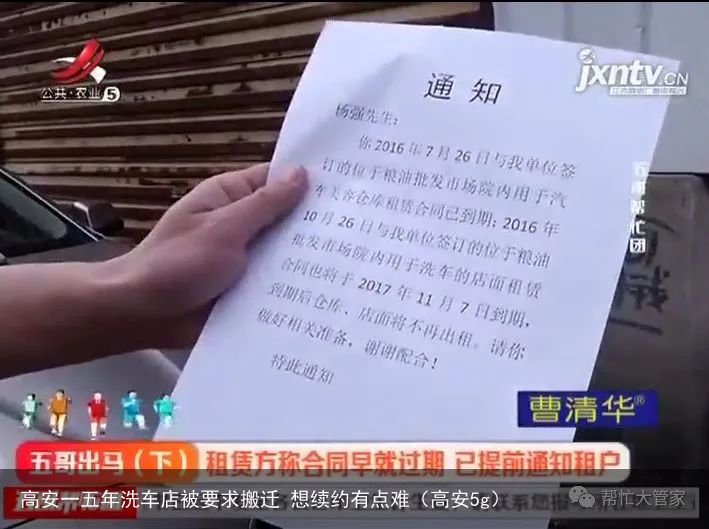 公共·农业5
jxntv.CN
通知
杨强先生：
你2016年7月26日与我单位签
订的位于粮油批发市场院内用于汽
车美容仓库租赁合同已到期；2016年
10月26日与我单位签订的位于粮油
批发市场院内用于洗车的店面租赁
合同也将于2017年11月7日到期，
到期后仓库、店面将不再出租。请你
做好相关准备，谢谢配合！
特此通知
五哥帮忙团
曹清华®
五哥出马（下） 租赁方称合同早就过期 已提前通知租户
高安一五年洗车店被要求搬迁 想续约有点难（高安5g）
帮忙大管家